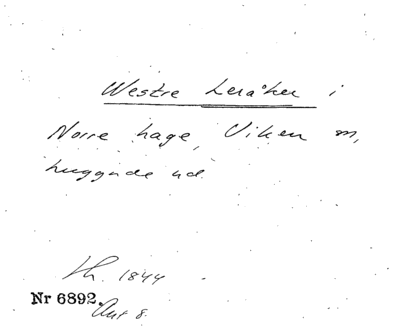 Westre Leråker i
Norre hage, Viken m,
huggnde ud.
Th. 1844
Nr 6892.
Ant 8.